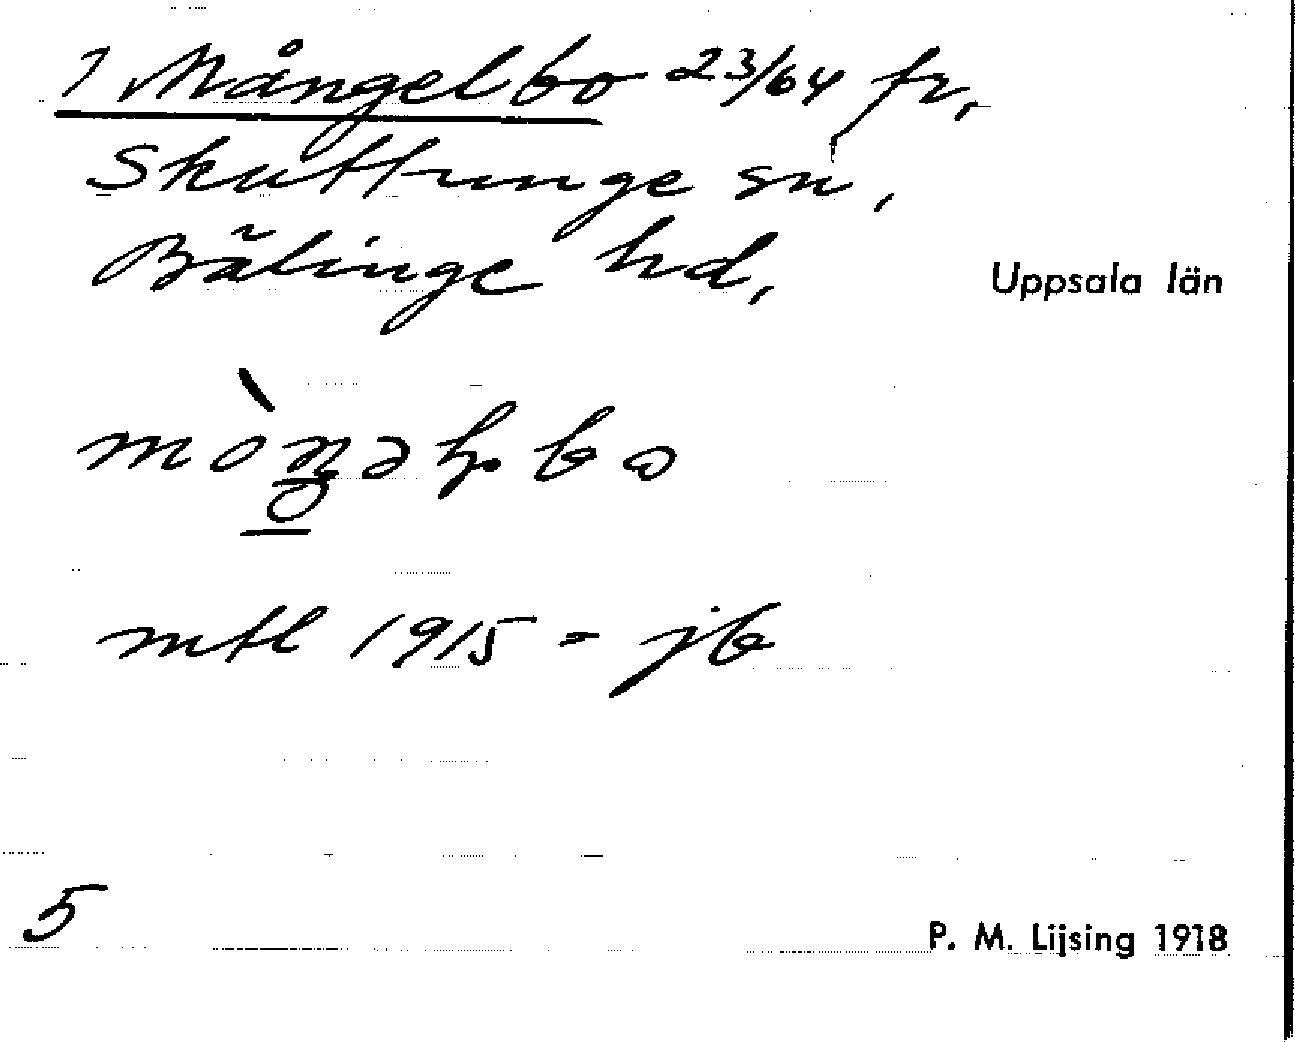 1 Mångelbo 23/64 fr,
Skuttunge sn,
Bälinge hd,
Uppsala län
mtl 1915 = jb
5
P. M. Lijsing 1918